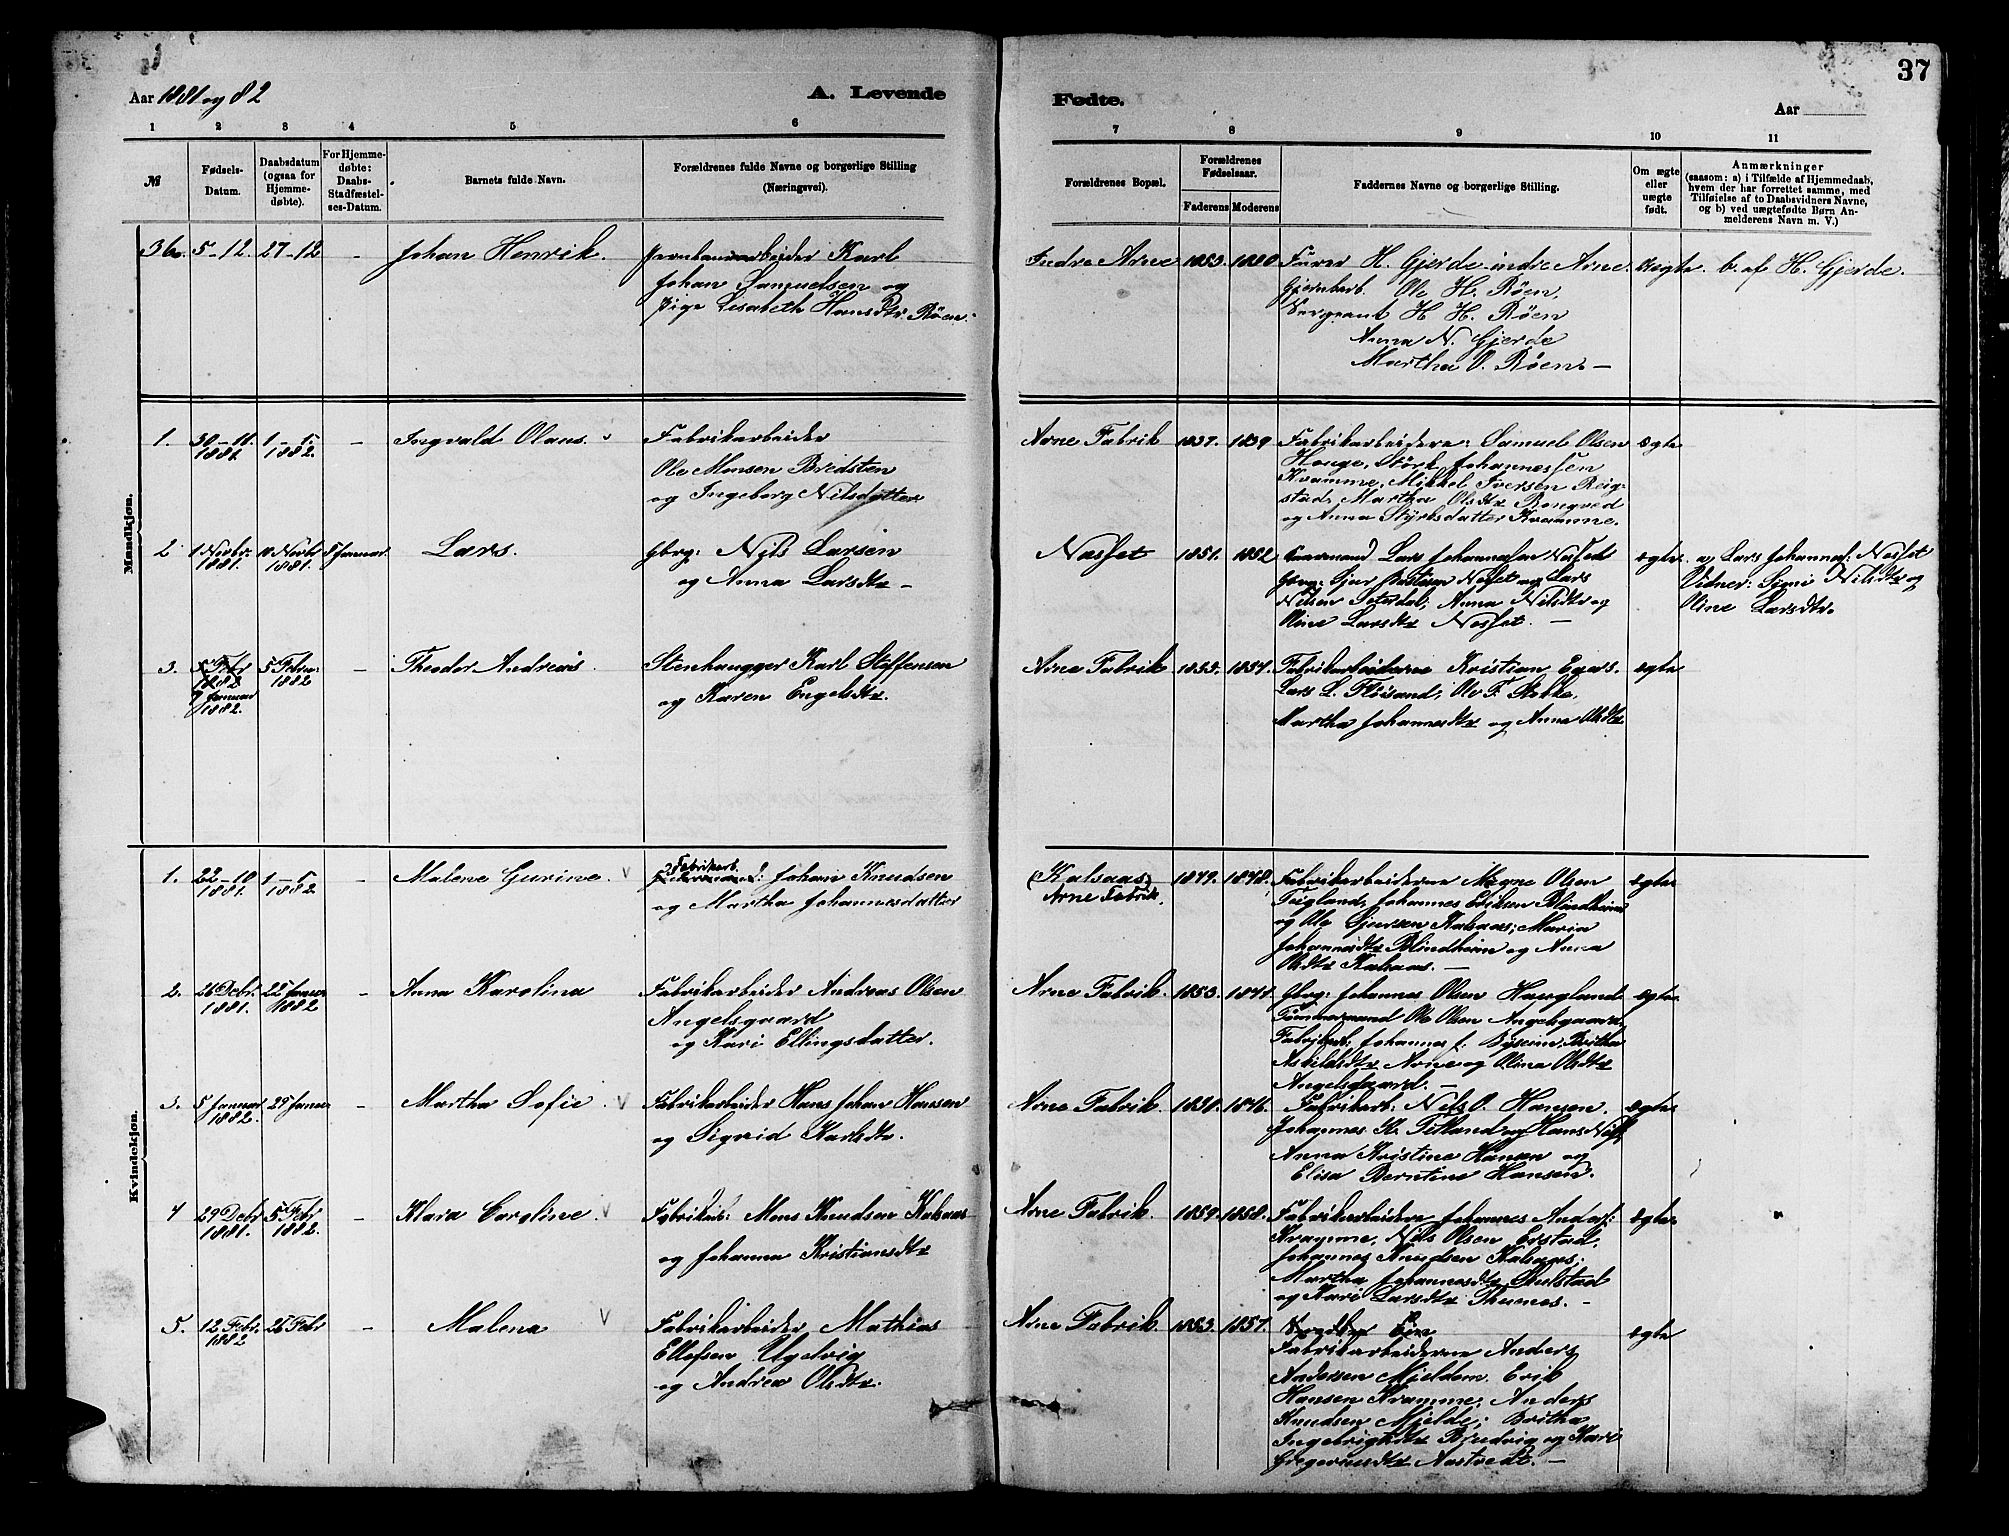 37
Aar 1881 og 82
A. Levende
Fødte.
Aar
1 2 3 4 5 6
7 8 9 10 11
№
Fødsels-
Datum.
Daabsdatum
(ogsaa for
Hjemme-
døbte).
For Hjemme-
døbte:
Daabs-
Stadfæstel-
ses-Datum.
Barnets fulde Navn.
Forældrenes fulde Navne og borgerlige Stilling
(Næringsvei).
Forældrenes Bopæl.
Forældrenes
Fødselsaar.
Faderens Moderens
Faddernes Navne og borgerlige Stilling.
Om ægte
eller
uægte
født.
Anmærkninger
(saasom: a) i Tilfælde af Hjemmedaab,
hvem der har forrettet samme, med
Tilføielse af to Daabsvidners Navne,
og b) ved uægtefødte Børn An-
melderens Navn m. V.)
Mandkjøn.
36. 5-12. 27-12 - Johan Henrik.
arbeider Karl
Johan Samuelsen og
Pige Lisabeth Hansdtr. Røen.
Indre Arne 1853. 1880
Furer H. Gjerde indre Arne.
Ole H. Røen,
Sergeant H. H. Røen
Anna N. Gjerde
Martha O. Røen. -
uægte b. af H. Gjerde.
1. 30-11. 1881. 1-1. 1882. - Ingvald Olaus.
Fabrikarbeider
Ole Monsen Bredsten
og Ingeborg Nilsdatter
Arne Fabrik 1837. 1839.
Fabrikarbeidere: Samuel Olsen
Houge, Størk Johannessen
Kvamme, Mikkel Iversen Reig-
stad, Martha Olsdtr
og Anna Styrksdatter Kvamme.
ægte
2 1 Novbr. 1881. Novbr 1881. 8 Januar Lars.
Gbrg: Nils Larsen
og Anna Larsdtr -
Nesset 1851. 1852
Lars Johannesen Nesset
Gbrg: Sjur Nesset og Lars
Nilsen Seterdal; Anna Nilsdtr og
Oline Larsdtr Nesset. -
ægte. a, Lars Johannes: Nesset
Vidner: Nilsdtr og
Oline Larsdtr.
3. 5 Febr 1882 9 Januar 1882. 5 Febru: 1882 - Theodor Andreas.
Stenhugger Karl Steffensen
og Karen Engelsdtr.
Arne Fabrik 1855. 1854.
Fabrikarbeiderne Kristian
Lars L. Fløisand, Ole
Martha Johannesdtr og Anna Olsdtr
ægte
Kvindekjøn.
1. 22-10 1881. 1-1 1882. - Malene Gurine.
Fabrikarb.
Johan Knudsen
og Martha Johannesdatter
(Kalsaas)
Arne Fabrik. 1849. 1848.
Fabrikarbeiderne Mogne Olsen
Teigland, Johannes Eriksen Blindheim
og Ole Sjursen Kalsaas; Maria
Johannesdtr Blindheim og Anna
Olsdtr Kalsaas. -
ægte
2. 26 Debr. 1881. 22 Januar 1882 - Anna Karolina
Fabrikarbeider Andreas Olsen
Angelsgaard
og Kari Ellingsdatter.
Arne Fabrik. 1853.
Gbrg: Johannes Olsen Haugland
Tømmermand Ole Olsen Angelsgaard
Britha
Arne og Olina Olsdtr
Angelsgaard. -
ægte
3. 5 Januar 1882. 29 Januar - Martha Sofie.
Fabrikarbeider Hans Johan Hansen
og Sigrid Karlsdtr.
Arne Fabrik. 1846.
Fabrikarb: Nils O. Hansen.
Johannes K. Titland og Hans
Anna Kristine Hansen og
Elisa Berntine Hansen.
ægte
4 29 Debr 1881. 5 Febr 1882. - Klara Caroline.
Fabrikarb: Mons Knudsen Kalsaas
og Johanna Kristiansdtr
Arne Fabrik. 1859. 1858.
Fabrikarbeidere Johannes Anders:
Kvamme, Nils Olsen
Johannes Knudsen Kalsaas;
Martha Johannesdtr
og Kari Larsdtr Thunes. -
ægte
5. 12 Febr. 1882 26 Febr - Malena
Fabrikarbeider Mathias
Ellefsen
og Andrea Olsdtr.
Arne Fabrik. 1853. 1857.
Fabrikarbeiderne Anders
Andersen Mjeldem Erik
Hansen Kvamme; Anders
Knudsen Mjelde; Britha
Ingebrigtsdtr og Kari
Gregoriusdtr Aastvedt. -
ægte